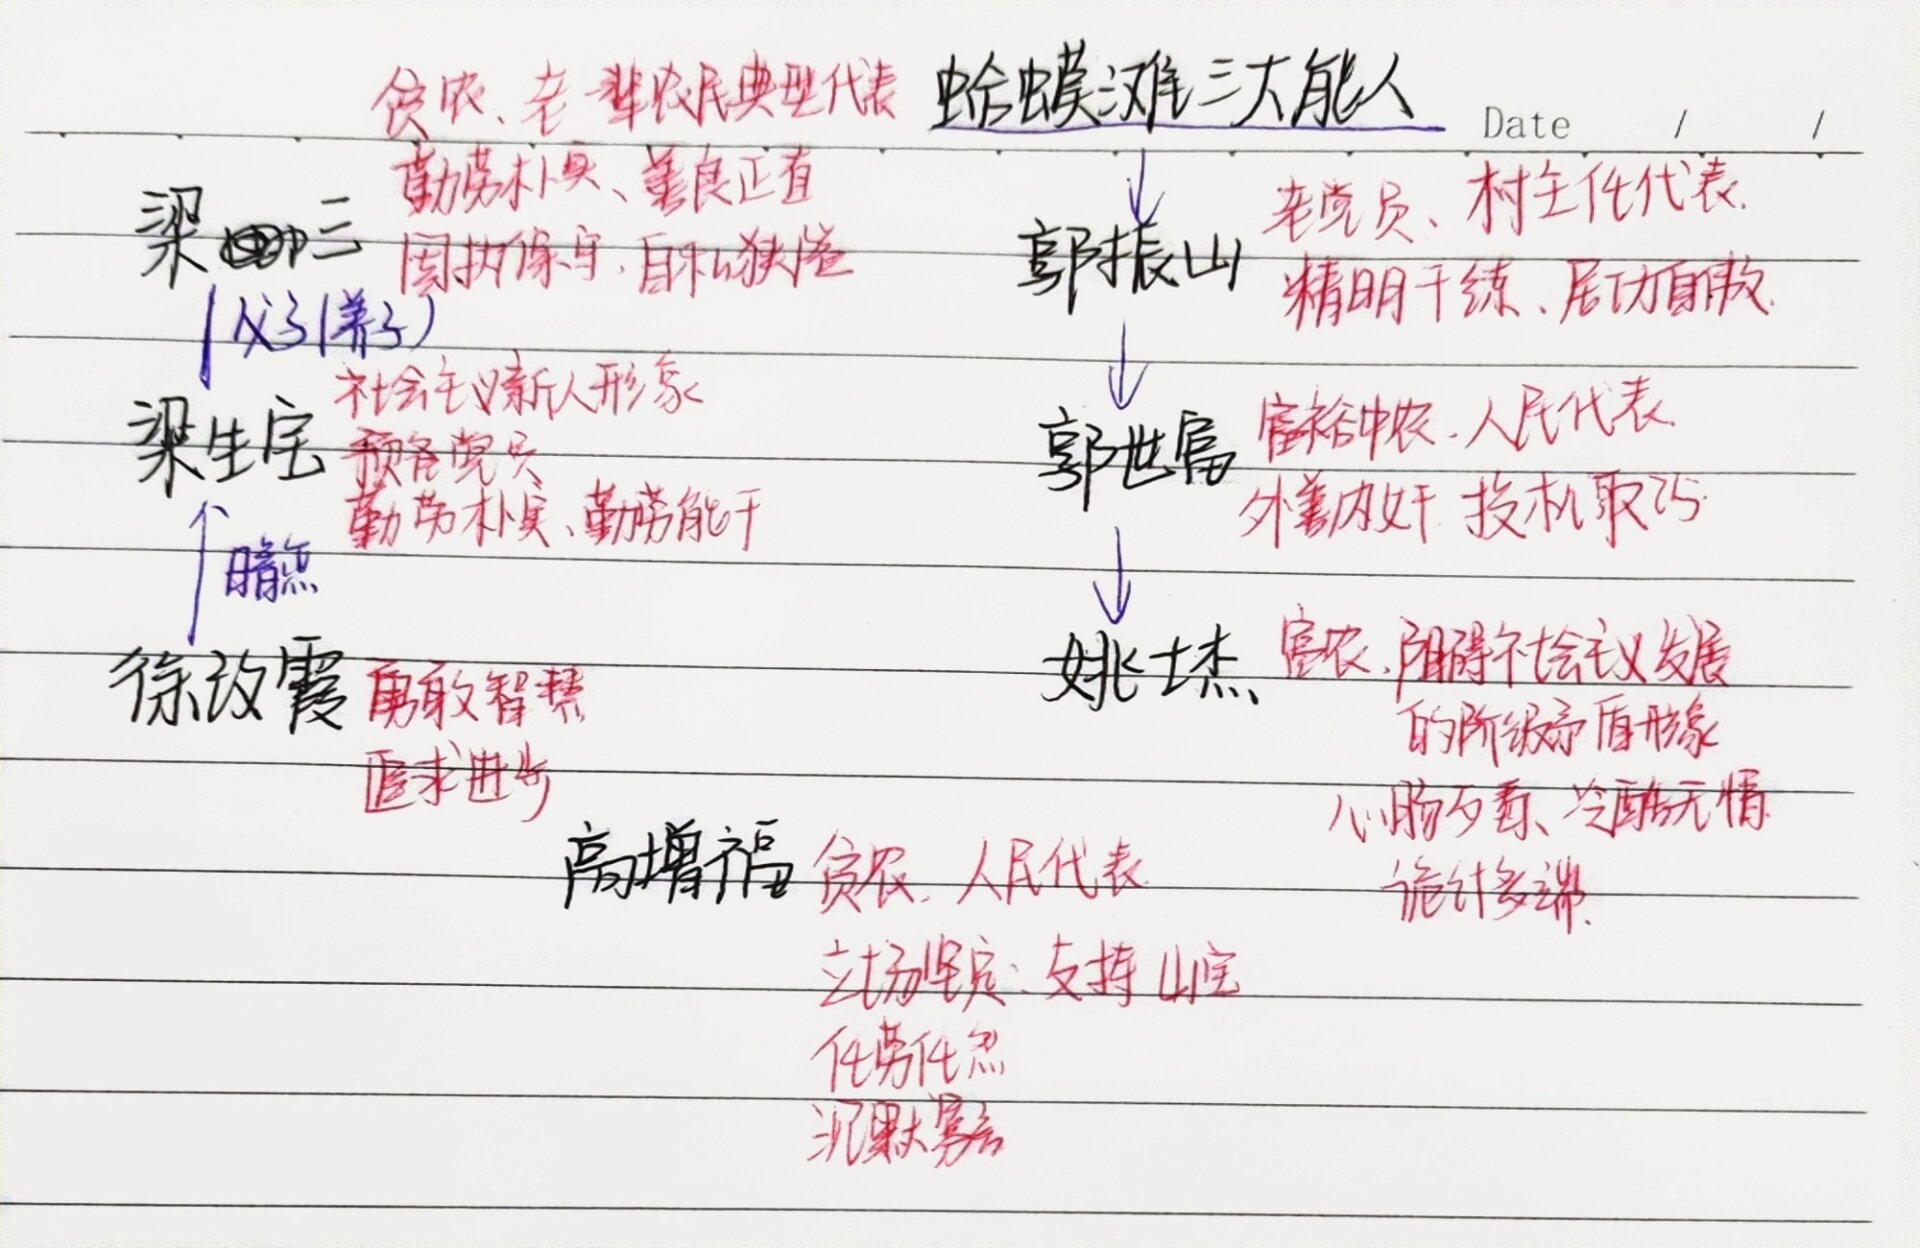 贫农、老一辈农民典型代表
勤劳朴实、善良正直
梁三
固执保守、自私狭隘
父子(养子)
梁生宝
社会主义新人形象
预备党员
勤劳朴实、勤劳能干
暗恋
徐改霞
勇敢智慧
追求进步
蛤蟆滩三大能人
Date / /
郭振山
老党员、村主任代表.
精明干练、居功自傲.
郭世富
富裕中农.人民代表.
外善内奸 投机取巧.
姚士杰、
富农、阻碍社会主义发展
的阶级矛盾形象
心肠歹毒、冷酷无情.
诡计多端.
高增福
贫农.人民代表.
立场坚定、支持山宝
任劳任怨
沉默寡言